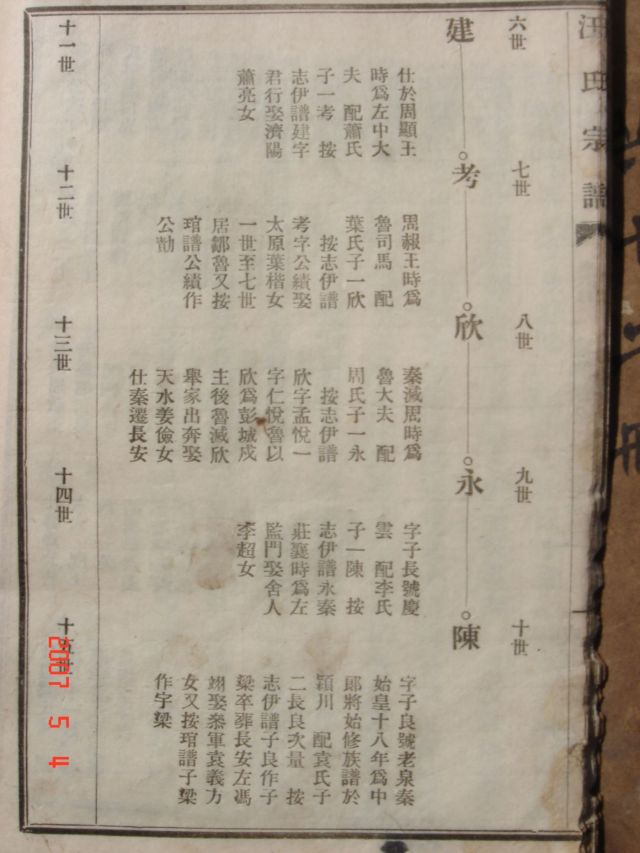 汪氏宗譜
六世
七世
八世
九世
十世
建
考
欣
永
陳
仕於周顯王
時爲左中大
夫　配蕭氏
子一考　按
志伊譜建字
君行娶濟陽
蕭亮女
周赧王時爲
魯司馬　配
葉氏子一欣
按志伊譜
考字公績娶
太原葉楷女
一世至七世
居鄒魯又按
琯譜公績作
公勣
秦滅周時爲
魯大夫　配
周氏子一永
按志伊譜
欣字孟悅一
字仁悅魯以
欣爲彭城戍
主後魯滅欣
舉家出奔娶
天水姜儉女
仕秦遷長安
字子長號慶
雲　配李氏
子一陳　按
志伊譜永秦
莊襄時爲左
監門娶舍人
李超女
字子良號老泉秦
始皇十八年爲中
郎將始修族譜於
潁川　配袁氏子
二長良次量　按
志伊譜子良作子
梁卒葬長安左馮
翊娶叅軍袁義方
女又按琯譜子梁
作宇梁
十一世
十二世
十三世
十四世
十五世
2007 5 4